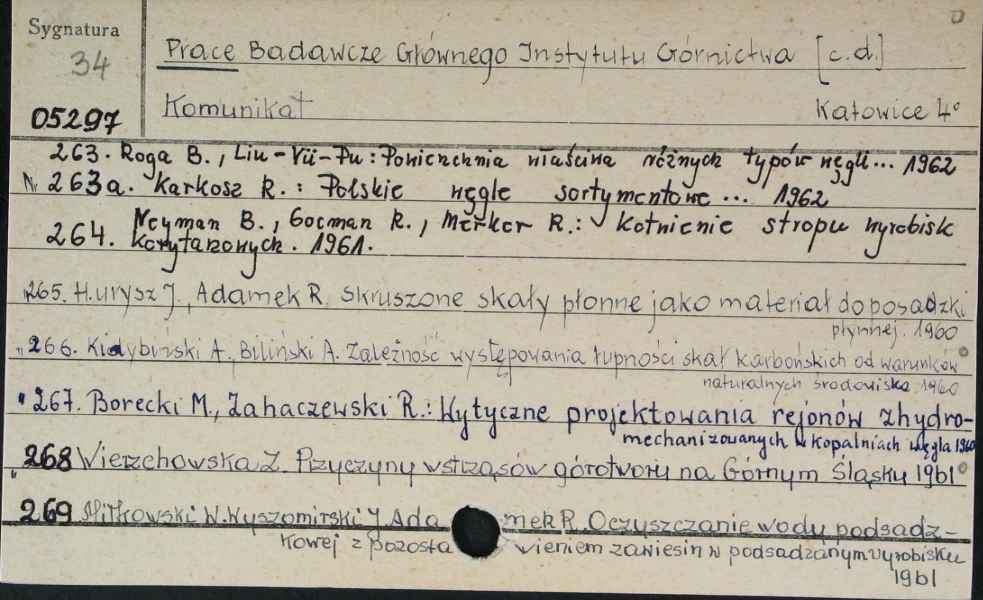 Sygnatura
34
05297
Prace Badawcze Głównego Instytutu Górnictwa [c.d.]
Komunikat Katowice 4°
263. Roga B., Liu-Vii-Pu: Powierzchnia właściwa różnych typów węgli... 1962
Nr 263a. Karkosz R.: Polskie węgle sortymentowe ... 1962
264. Neyman B., Gocman R., Merker R.: Kotwienie stropu wyrobisk
korytarzowych. 1961.
265. H.urysz J., Adamek R. Skruszone skały płonne jako materiał do posadzki
płynnej. 1960
" 266. Kidybiński A., Biliński A. Zależność występowania łupności skał karbońskich od warunków
naturalnych środowiska 1960
" 267. Borecki M., Zahaczewski R.: Wytyczne projektowania rejonów zhydro-
mechanizowanych w kopalniach węgla 1960
" 268 Wierzchowska Z. Przyczyny wstrząsów górotworu na Górnym Śląsku 1961
269 Witkowski W. Wyszomirski J. Adamek R. Oczyszczanie wody podsadz-
kowej z pozostawieniem zawiesin w podsadzanym wyrobisku
1961